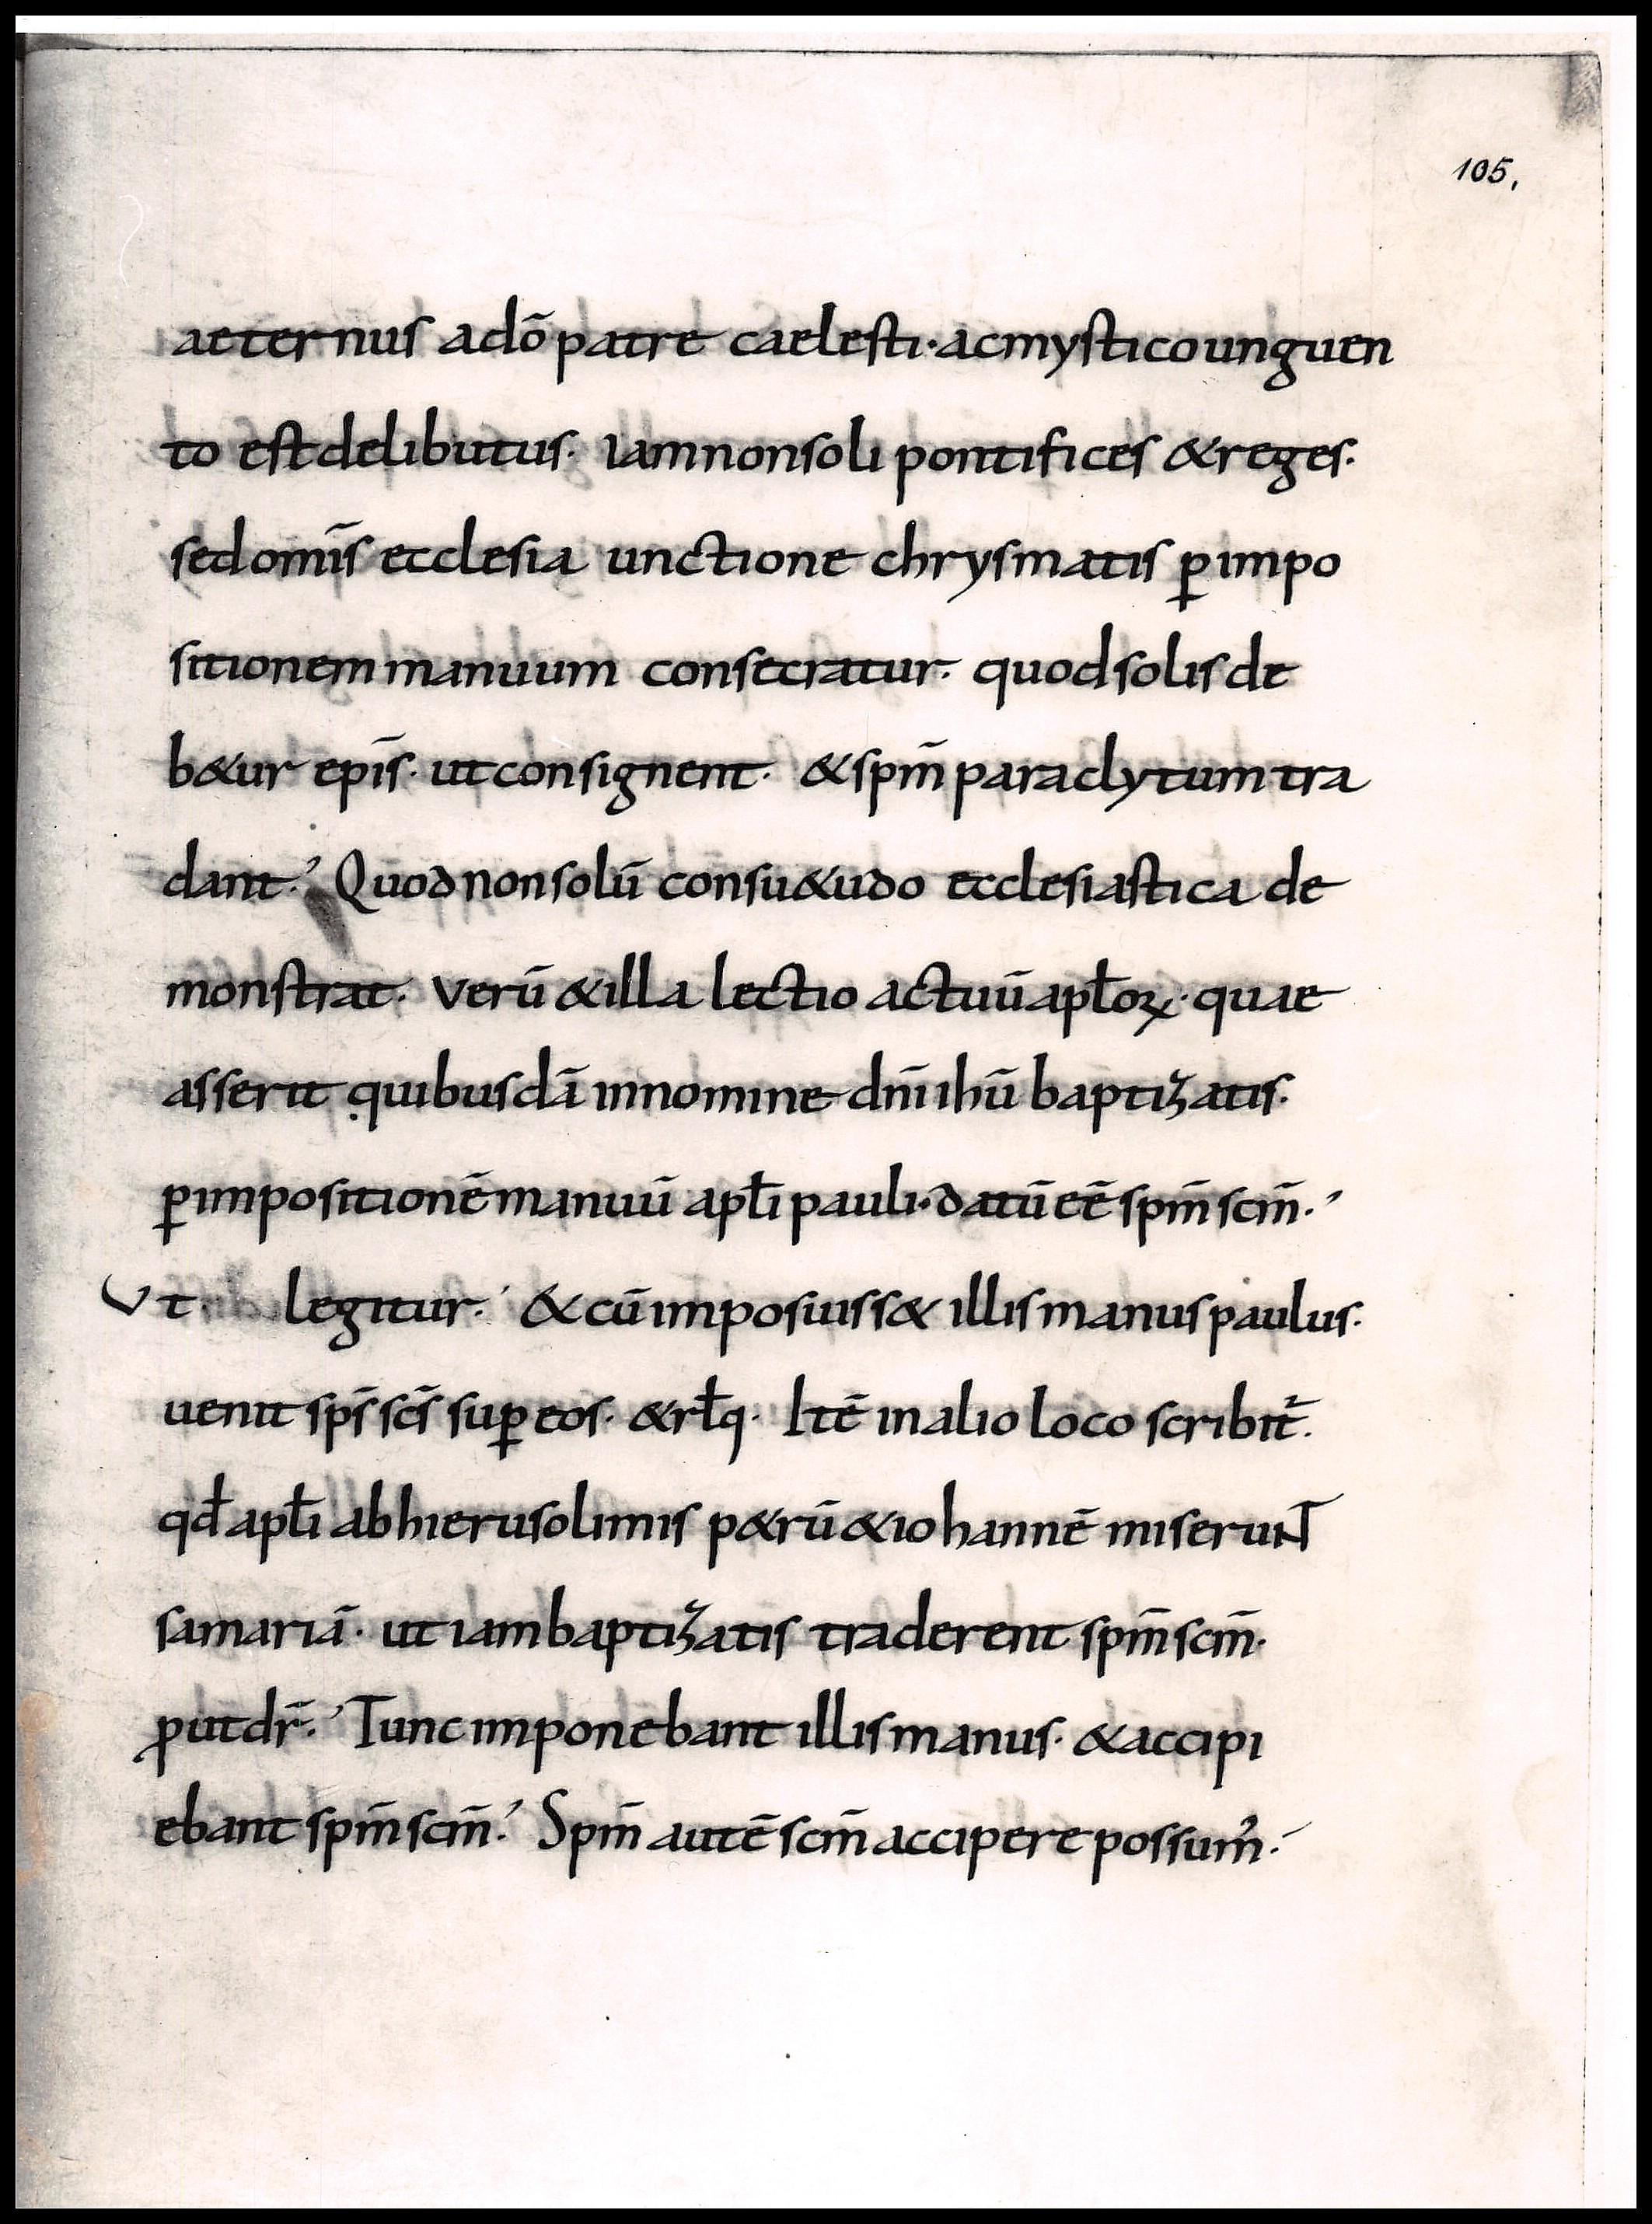 105.
aeternus ado̅ patre caelesti · ac mystico unguen
to est delibutus · Iam non soli pontifices & reges ·
sed omīs ecclesia unctione chrysmatis ꝑ impo
sitionem manuum consecratur · quod solis de
b&ur epīs · ut consignent · & spm̅ paraclytum tra
dant ·' Quod non solū consu&udo ecclesiastica de
monstrat · verū & illa lectio actuū apłoꝝ · quae
asserit quibusdā in nomine dn̅i ihū baptizatis ·
ꝑ impositionē manuū apłi pauli · datū eē spm̅ scm̅ ·'
Ut legitur ·' & cū imposuiss& illis manus paulus ·
uenit sps̅ scs̅ suꝑ eos · & rłq · Itē in alio loco scribit̅ ·
qđ apłi ab hierusolimis p&rū & iohannē miserunt
samariā · ut iam baptizatis traderent spm̅ scm̅ ·
ꝓut dr̅ ·' Tunc imponebant illis manus · & accipi
ebant spm̅ scm̅ ·' Spm̅ autē scm̅ accipere possum᾽ ·'